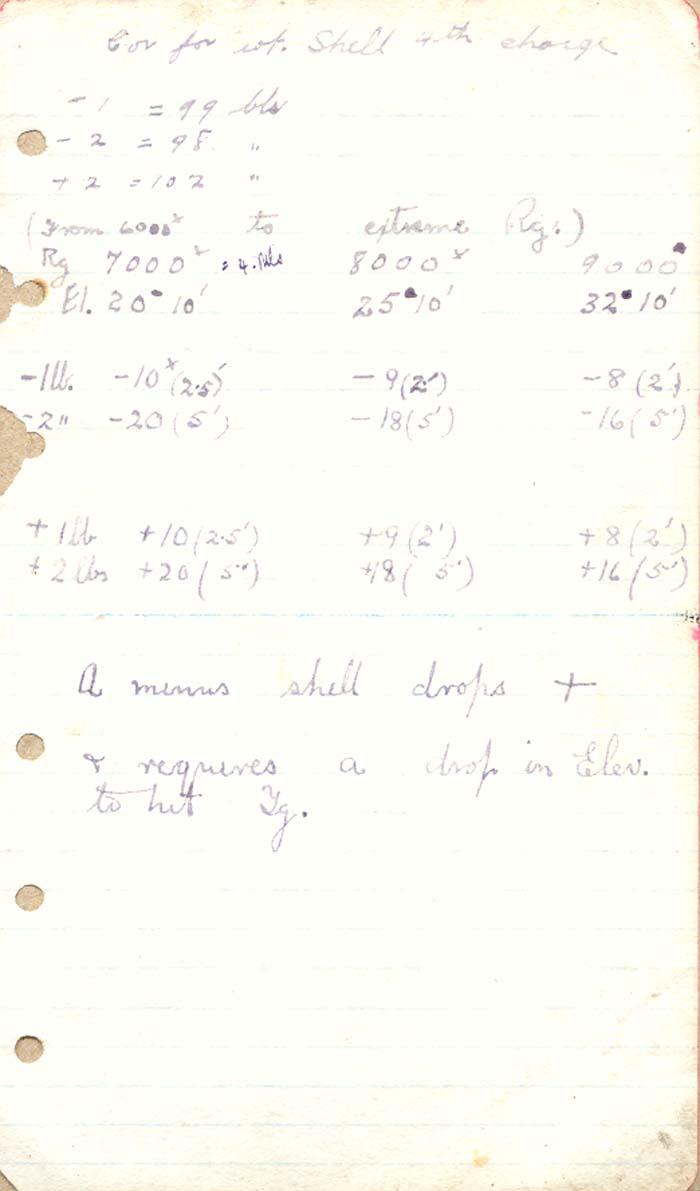 Cor for wt. Shell 4th charge
- 1 = 99 lbs
- 2 = 98 "
+ 2 = 102 "
(From 6000x to extreme Rg.)
Rg 7000x = 4. 8000x 9000
El. 20° 10' 25° 10' 32° 10'
-1lb. -10x (2.5') -9 (2') -8 (2')
-2" -20 (5') -18 (5') -16 (5')
+ 1lb +10 (2.5') +9 (2') +8 (2')
+ 2 lbs +20 (5') +18 (5') +16 (5')
A minus shell drops +
& requires a drop in Elev.
to hit Tg.